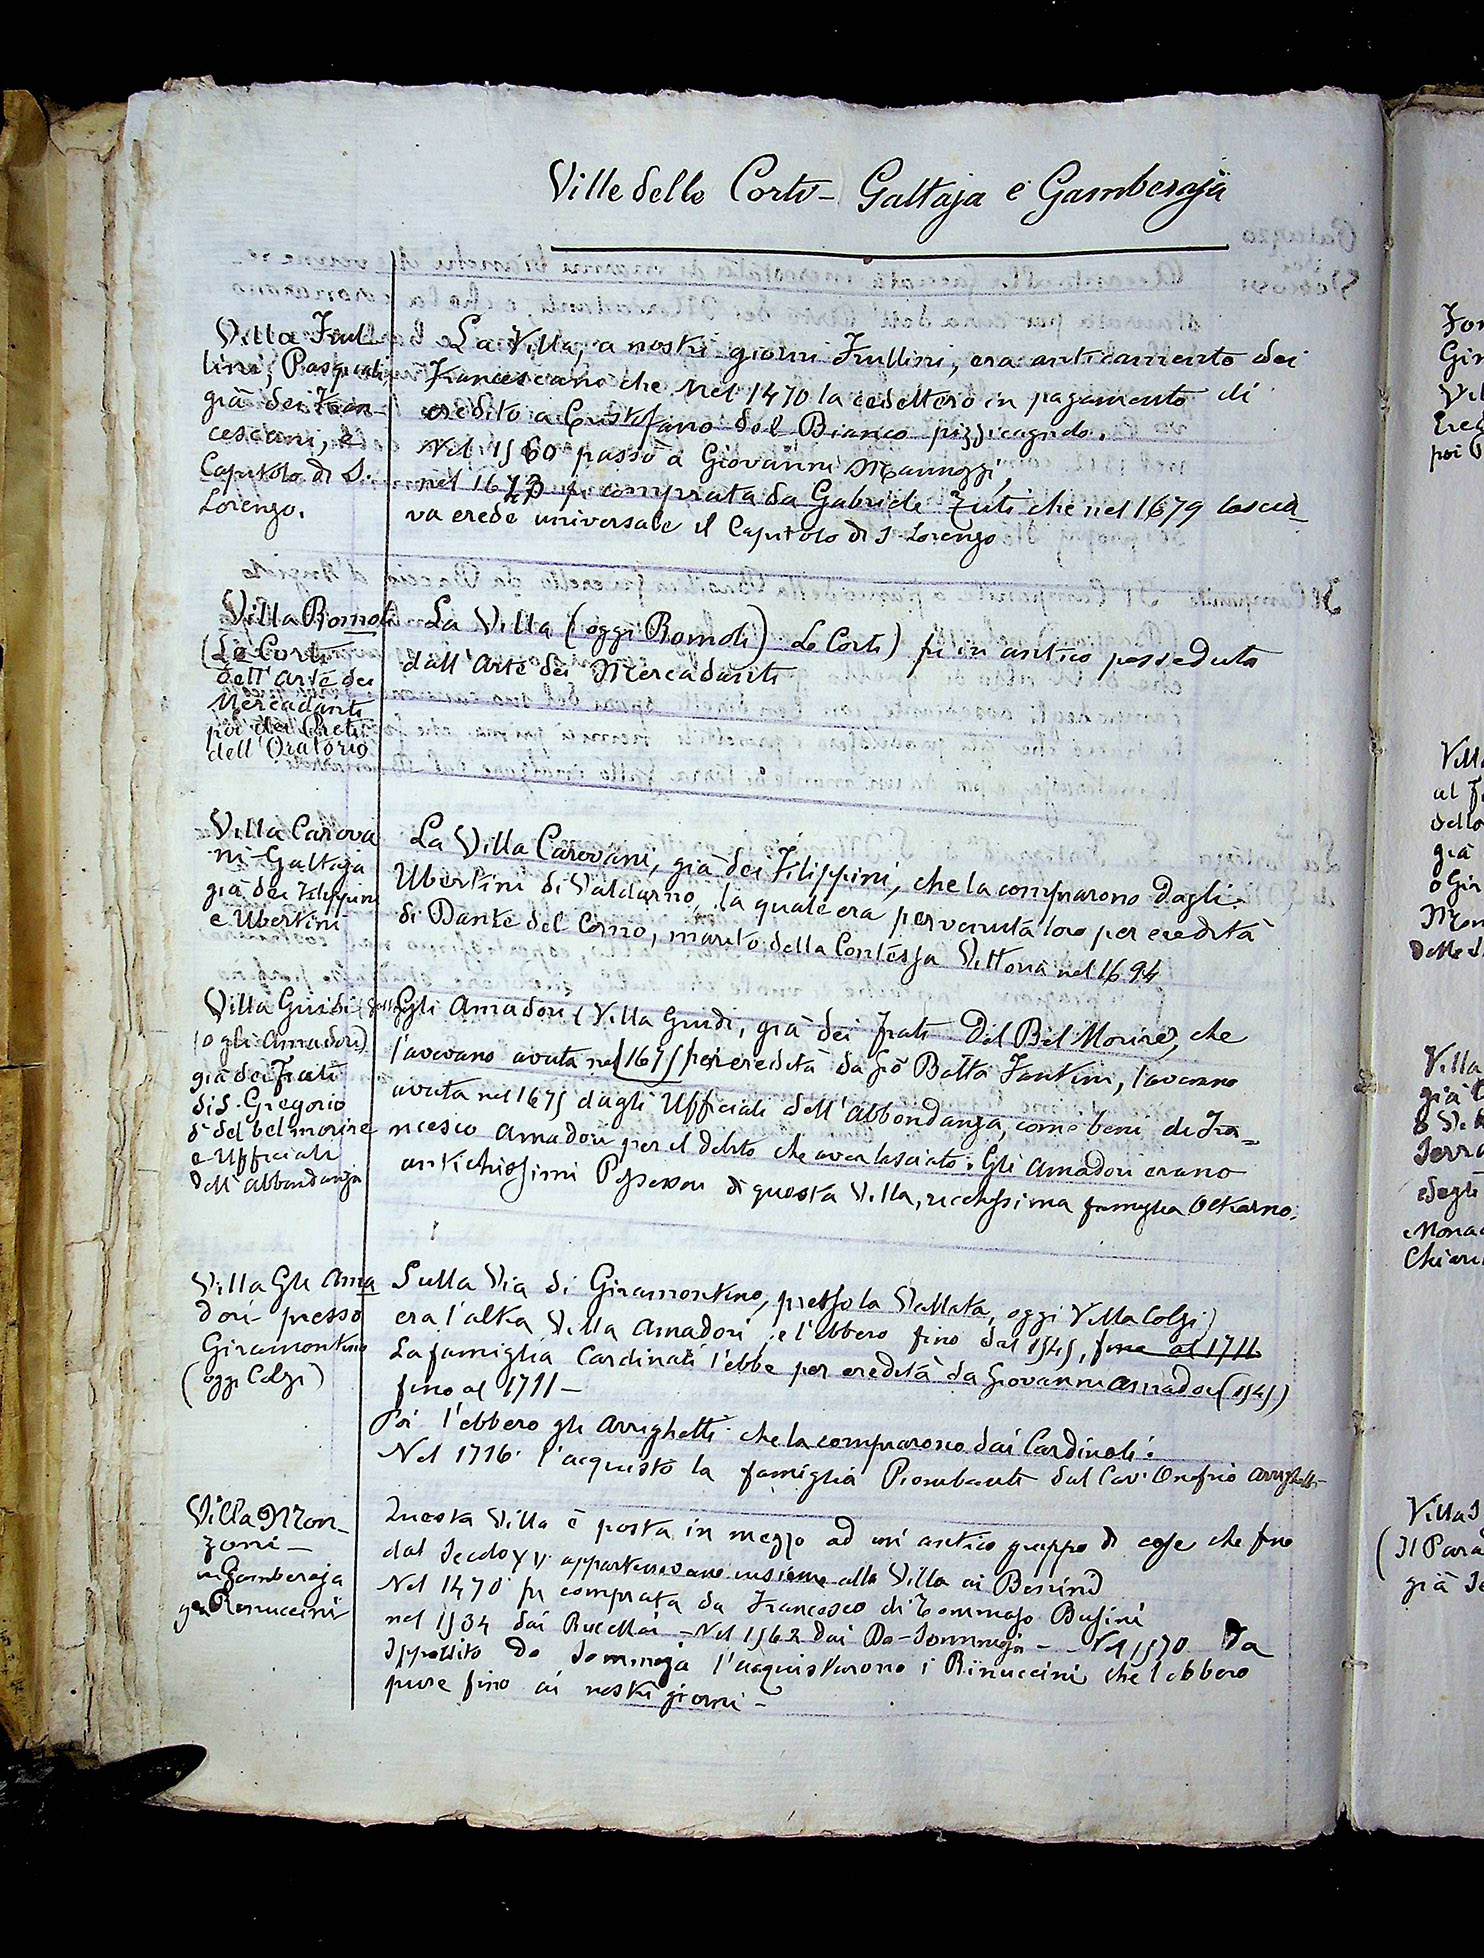 Ville delle Corti - Gattaja e Gamberaja
Villa Frul
lini, Pasquali
già dei Fran-
cescani, e
Capitolo di S.
Lorenzo.
La Villa, a nostri giorni Frullini, era anticamente dei
Francescani che nel 1470 la cedettero in pagamento di
credito a Cristofano del Bianco pizzicagnolo.
Nel 1560 passò a Giovanni Mannozzi,
nel 16 fu comprata da Gabriele Zuti che nel 1679 lascia-
va erede universale il Capitolo di S. Lorenzo
Villa Romoli
(Le Corti
dell'arte dei
Mercadanti
poi dei Preti
dell'Oratorio
La Villa (oggi Romoli) Le Corti) fu in antico posseduta
dall'Arte dei Mercadanti
Villa Carova
ni - Gattaja
già dei Filippini
e Ubertini
La Villa Carovani, già dei Filippini, che la comprarono dagli
Ubertini di Valdarno, la quale era pervenuta loro per eredità
di Dante del Corno, marito della Contessa Vittoria nel 1694
Villa Guidi
(o gli Amadori)
già dei Frati
di S. Gregorio
o del bel morire
e Ufficiali
dell'abbondanza
Gli Amadori (Villa Guidi, già dei frati Del Bel Morire, che
l'avevano avuta nel 1675 per eredità da Gio Batta Fantini, l'avevano
avuta nel 1675 dagli Ufficiali dell'abbondanza, come beni di Fra=
ncesco Amadori per il debito che aveva lasciato. Gli Amadori erano
antichissimi Possessori di questa Villa, ricchissima famiglia Oltrarno.
Villa Gli Ama
dori presso
Giramontino
(oggi Colzi)
Sulla Via di Giramontino, presso la Vallata, oggi Villa Colzi)
era l'altra Villa Amadori, e l'ebbero fino dal 1545, fino al 1711
La famiglia Cardinali l'ebbe per eredità da Giovanni Amadori (1545)
fino al 1711 -
Poi l'ebbero gli Arrighetti che la comprarono dai Cardinali.
Nel 1716 l'acquistò la famiglia Piombanti dal Cav. Onofrio Arrighetti
Villa Mon-
zoni -
a Gamberaja
già Rinuccini
Questa Villa è posta in mezzo ad un'antico gruppo di case che fino
dal Secolo XV appartenevano insieme alla Villa ai Benini
Nel 1470 fu comprata da Francesco di Tommaso Busini
nel 1534 dai Rucellai - Nel 1562 dai Da-Sommaja - Nel 1570 Da
Ippolito da Sommaja l'acquistarono i Rinuccini che l'ebbero
pure fino ai nostri giorni -